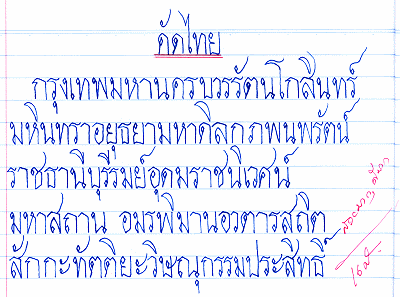 คัดไทย
กรุงเทพมหานครบวรรัตนโกสินทร์
มหินทราอยุธยามหาดิลกภพนพรัตน์
ราชธานีบุรีรมย์อุดมราชนิเวศน์
มหาสถาน อมรพิมานอวตารสถิต
สักกะทัตติยะวิษณุกรรมประสิทธิ์